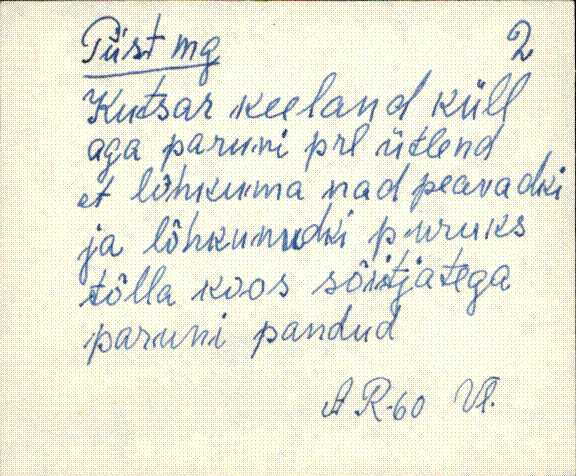 Püst mg 2
Kutsar keeland küll
aga paruni prl ütlend
et lõhkuma nad peavadki
ja lõhkunudki puruks
tõlla koos sõitjatega
paruni pandud
AR-60 Vl.